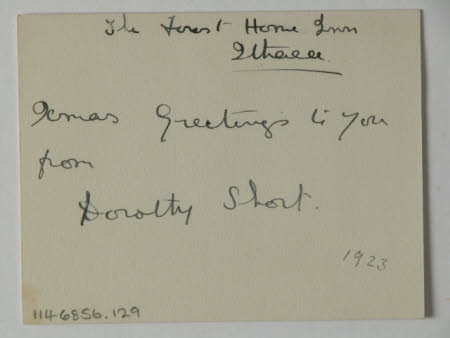 The Forest Home Inn
Ithaca.
Xmas Greetings to you
from
Dorothy Short.
1923
1146856.129